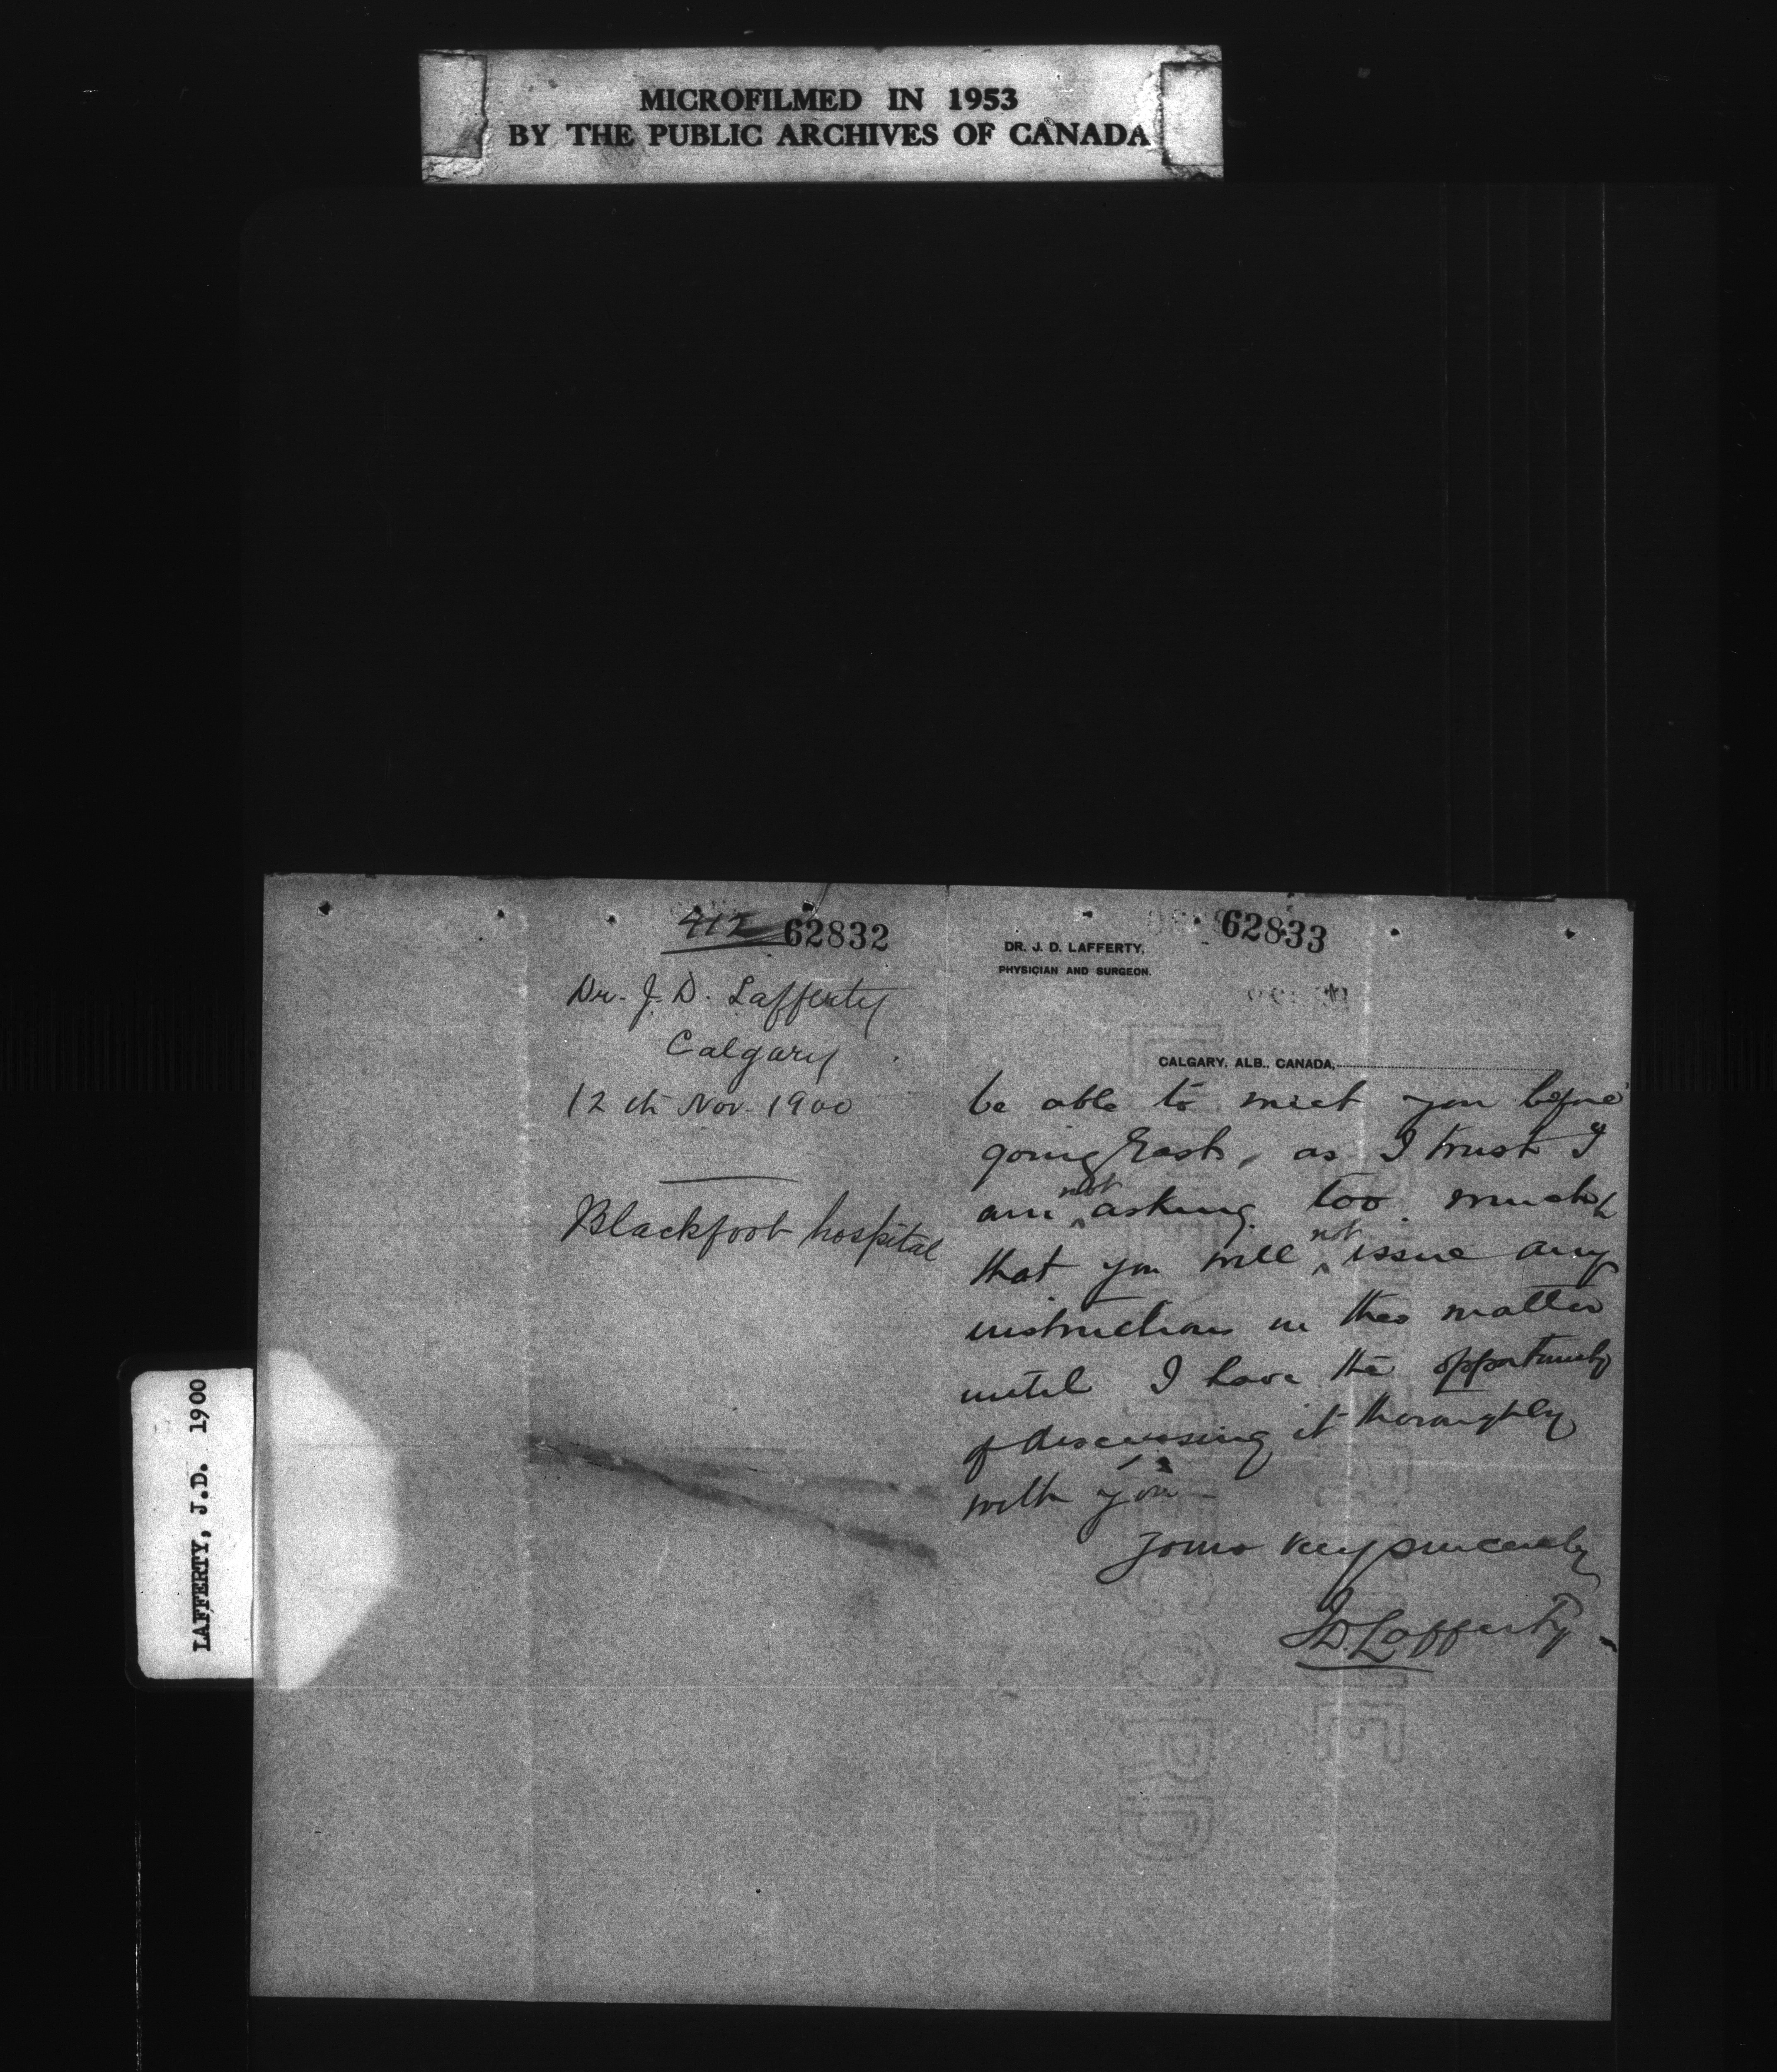 MICROFILMED IN 1953
BY THE PUBLIC ARCHIVES OF CANADA
LAFFERTY, J.D. 1900
412 62832
Dr. J. D. Lafferty
Calgary
12th Nov. 1900
Blackfoot hospital
62833
DR. J. D. LAFFERTY,
PHYSICIAN AND SURGEON.
CALGARY, ALB., CANADA,
be able to meet you before
going East, as I trust I
am not asking too much
that you will not issue any
instructions in this matter
until I have the opportunity
of discussing it thoroughly
with you
Yours very sincerely
J.D. Lafferty